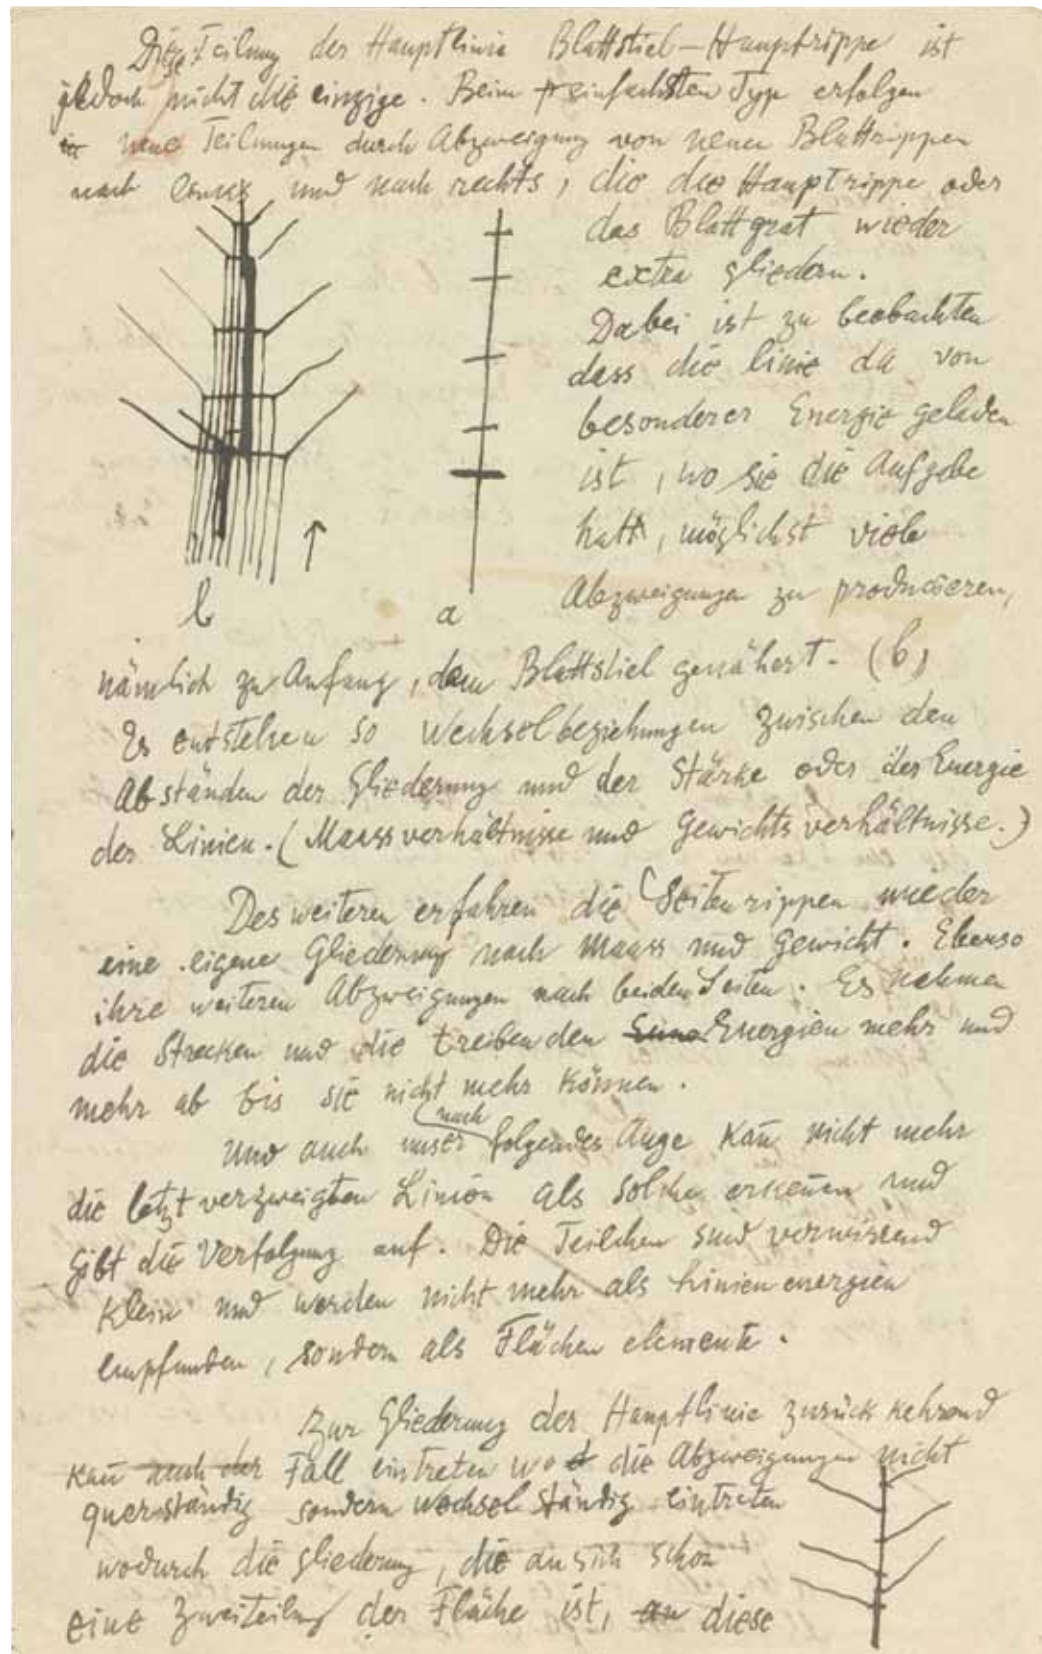 Diese Teilung der Hauptlinie Blattstiel – Hauptrippe ist
jedoch nicht die einzige. Beim einfachsten Typ erfolgen
neue Teilungen durch Abzweigung von neuen Blattrippen
nach links und nach rechts, die die Hauptrippe oder
das Blattgrat wieder
extra gliedern.
Dabei ist zu beobachten
dass die linie da von
besonderer Energie geladen
ist, wo sie die Aufgabe
hatt, möglichst viele
Abzweigungen zu producieren,
b a
nämlich zu Anfang, dem Blattstiel genähert. (b)
Es entstehen so Wechselbeziehungen zwischen den
Abständen der Gliederung und der Stärke oder der Energie
der Linien. (Maassverhältnisse und Gewichtsverhältnisse.)
Des weiteren erfahren die Seitenrippen wieder
eine eigene Gliederung nach Maass und Gewicht. Ebenso
ihre weiteren Abzweigungen nach beiden Seiten. Es nehmen
die Strecken und die treibenden Energien mehr und
mehr ab bis sie nicht mehr können.
nach
Und auch unser folgendes Auge kañ nicht mehr
die letzt verzweigten Linien als solche erkeñen und
gibt die Verfolgung auf. Die Teilchen sind verwirrend
klein und werden nicht mehr als Linienenergien
empfunden, sondern als Flächen elemente.
Zur Gliederung der Hauptlinie zurück kehrend
kañ auch der Fall eintreten wo die Abzweigungen nicht
querständig sondern wechsel ständig eintreten
wodurch die gliederung, die an sich schon
eine Zweiteilung der Fläche ist, an diese